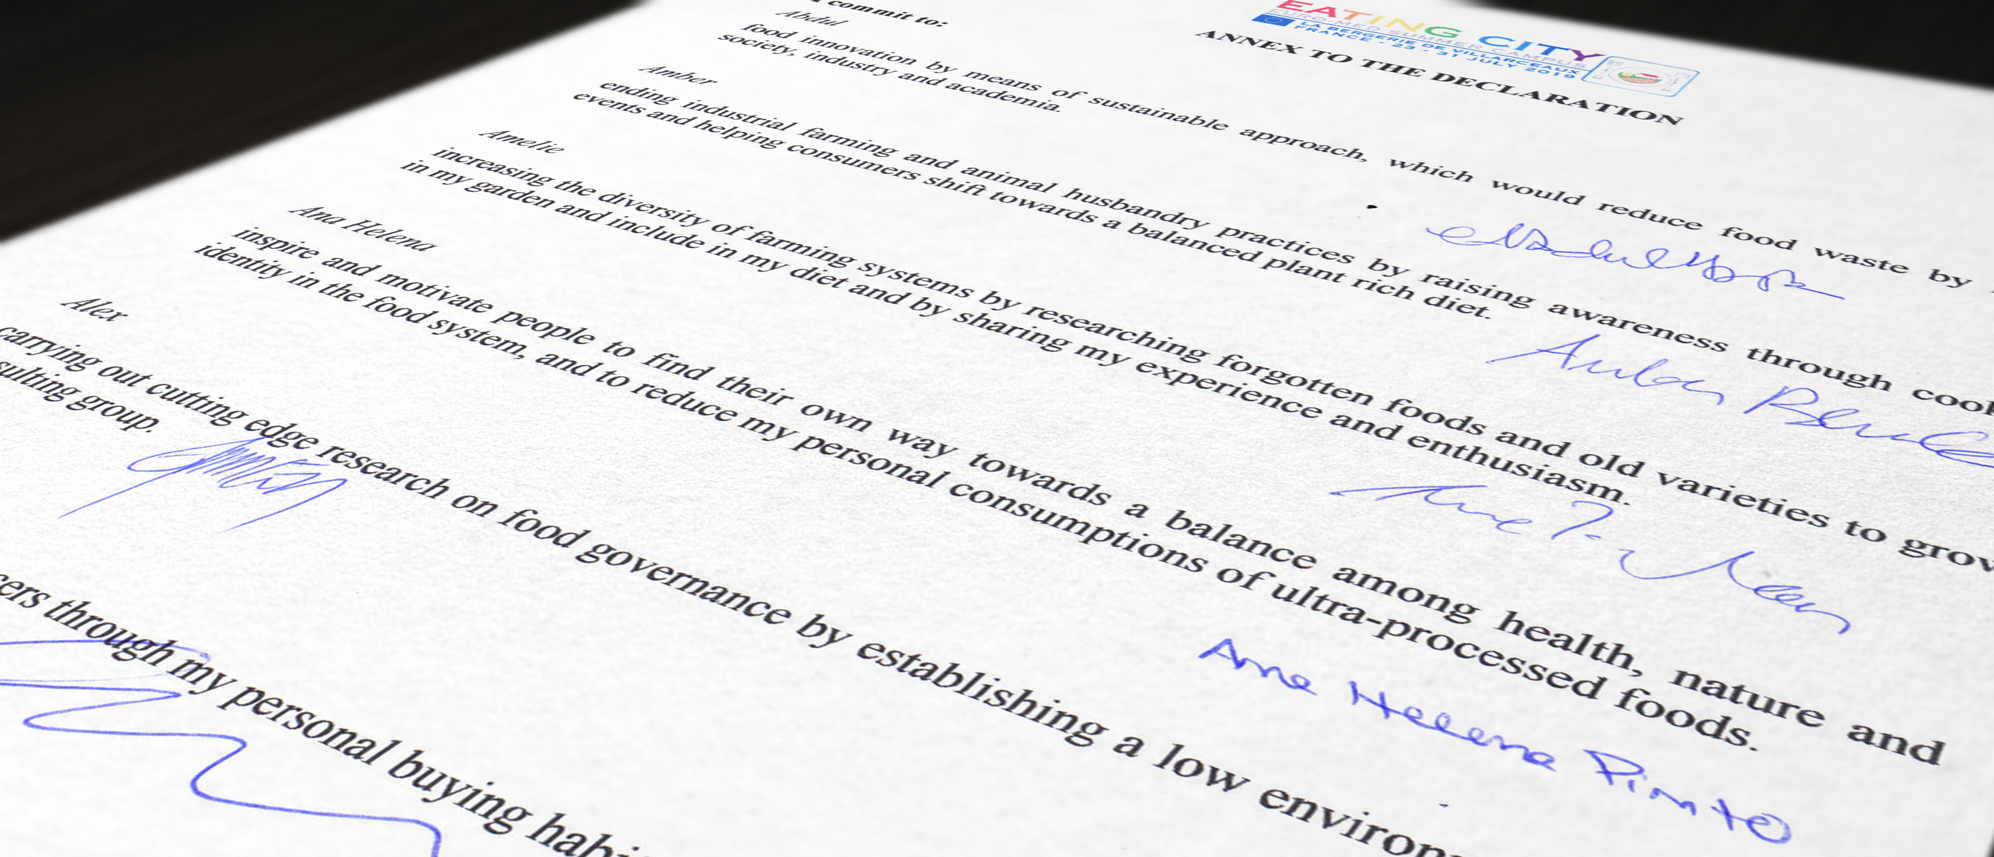 EATING CITY
EURO-MED SUMMER CAMPUS
LA BERGERIE DE VILLARCEAUX
FRANCE - 23 - 31 JULY 2019
ANNEX TO THE DECLARATION
commit to:
Abdul
food innovation by means of sustainable approach, which would reduce food waste by
society, industry and academia.
Amber
ending industrial farming and animal husbandry practices by raising awareness through cook
events and helping consumers shift towards a balanced plant rich diet.
Amelie
increasing the diversity of farming systems by researching forgotten foods and old varieties to grow
in my garden and include in my diet and by sharing my experience and enthusiasm.
Ana Helena
inspire and motivate people to find their own way towards a balance among health, nature and
identity in the food system, and to reduce my personal consumptions of ultra-processed foods.
Ana Helena Pinto
Alex
carrying out cutting edge research on food governance by establishing a low environ
sulting group.
ers through my personal buying habi